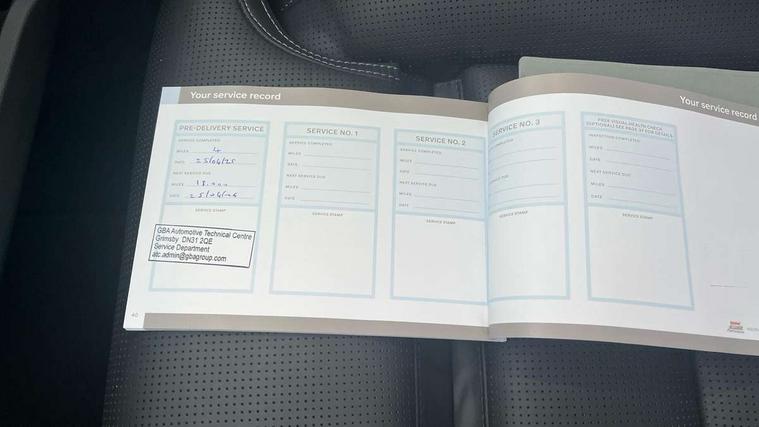 Your service record
PRE-DELIVERY SERVICE
SERVICE COMPLETED
MILES 4
DATE 25/04/25
NEXT SERVICE DUE
MILES 18.000
DATE 25/04/26
SERVICE STAMP
GBA Automotive Technical Centre
Grimsby DN31 2QE
Service Department
atc.admin@gbagroup.com
40
SERVICE NO. 1
SERVICE COMPLETED
MILES
DATE
NEXT SERVICE DUE
MILES
DATE
SERVICE STAMP
SERVICE NO. 2
SERVICE COMPLETED
MILES
DATE
NEXT SERVICE DUE
MILES
DATE
SERVICE STAMP
Your service record
SERVICE NO. 3
COMPLETED
DUE
SERVICE STAMP
FREE VISUAL HEALTH CHECK
(OPTIONAL) SEE PAGE 37 FOR DETAILS
INSPECTION COMPLETED
MILES
DATE
NEXT SERVICE DUE
MILES
DATE
SERVICE STAMP